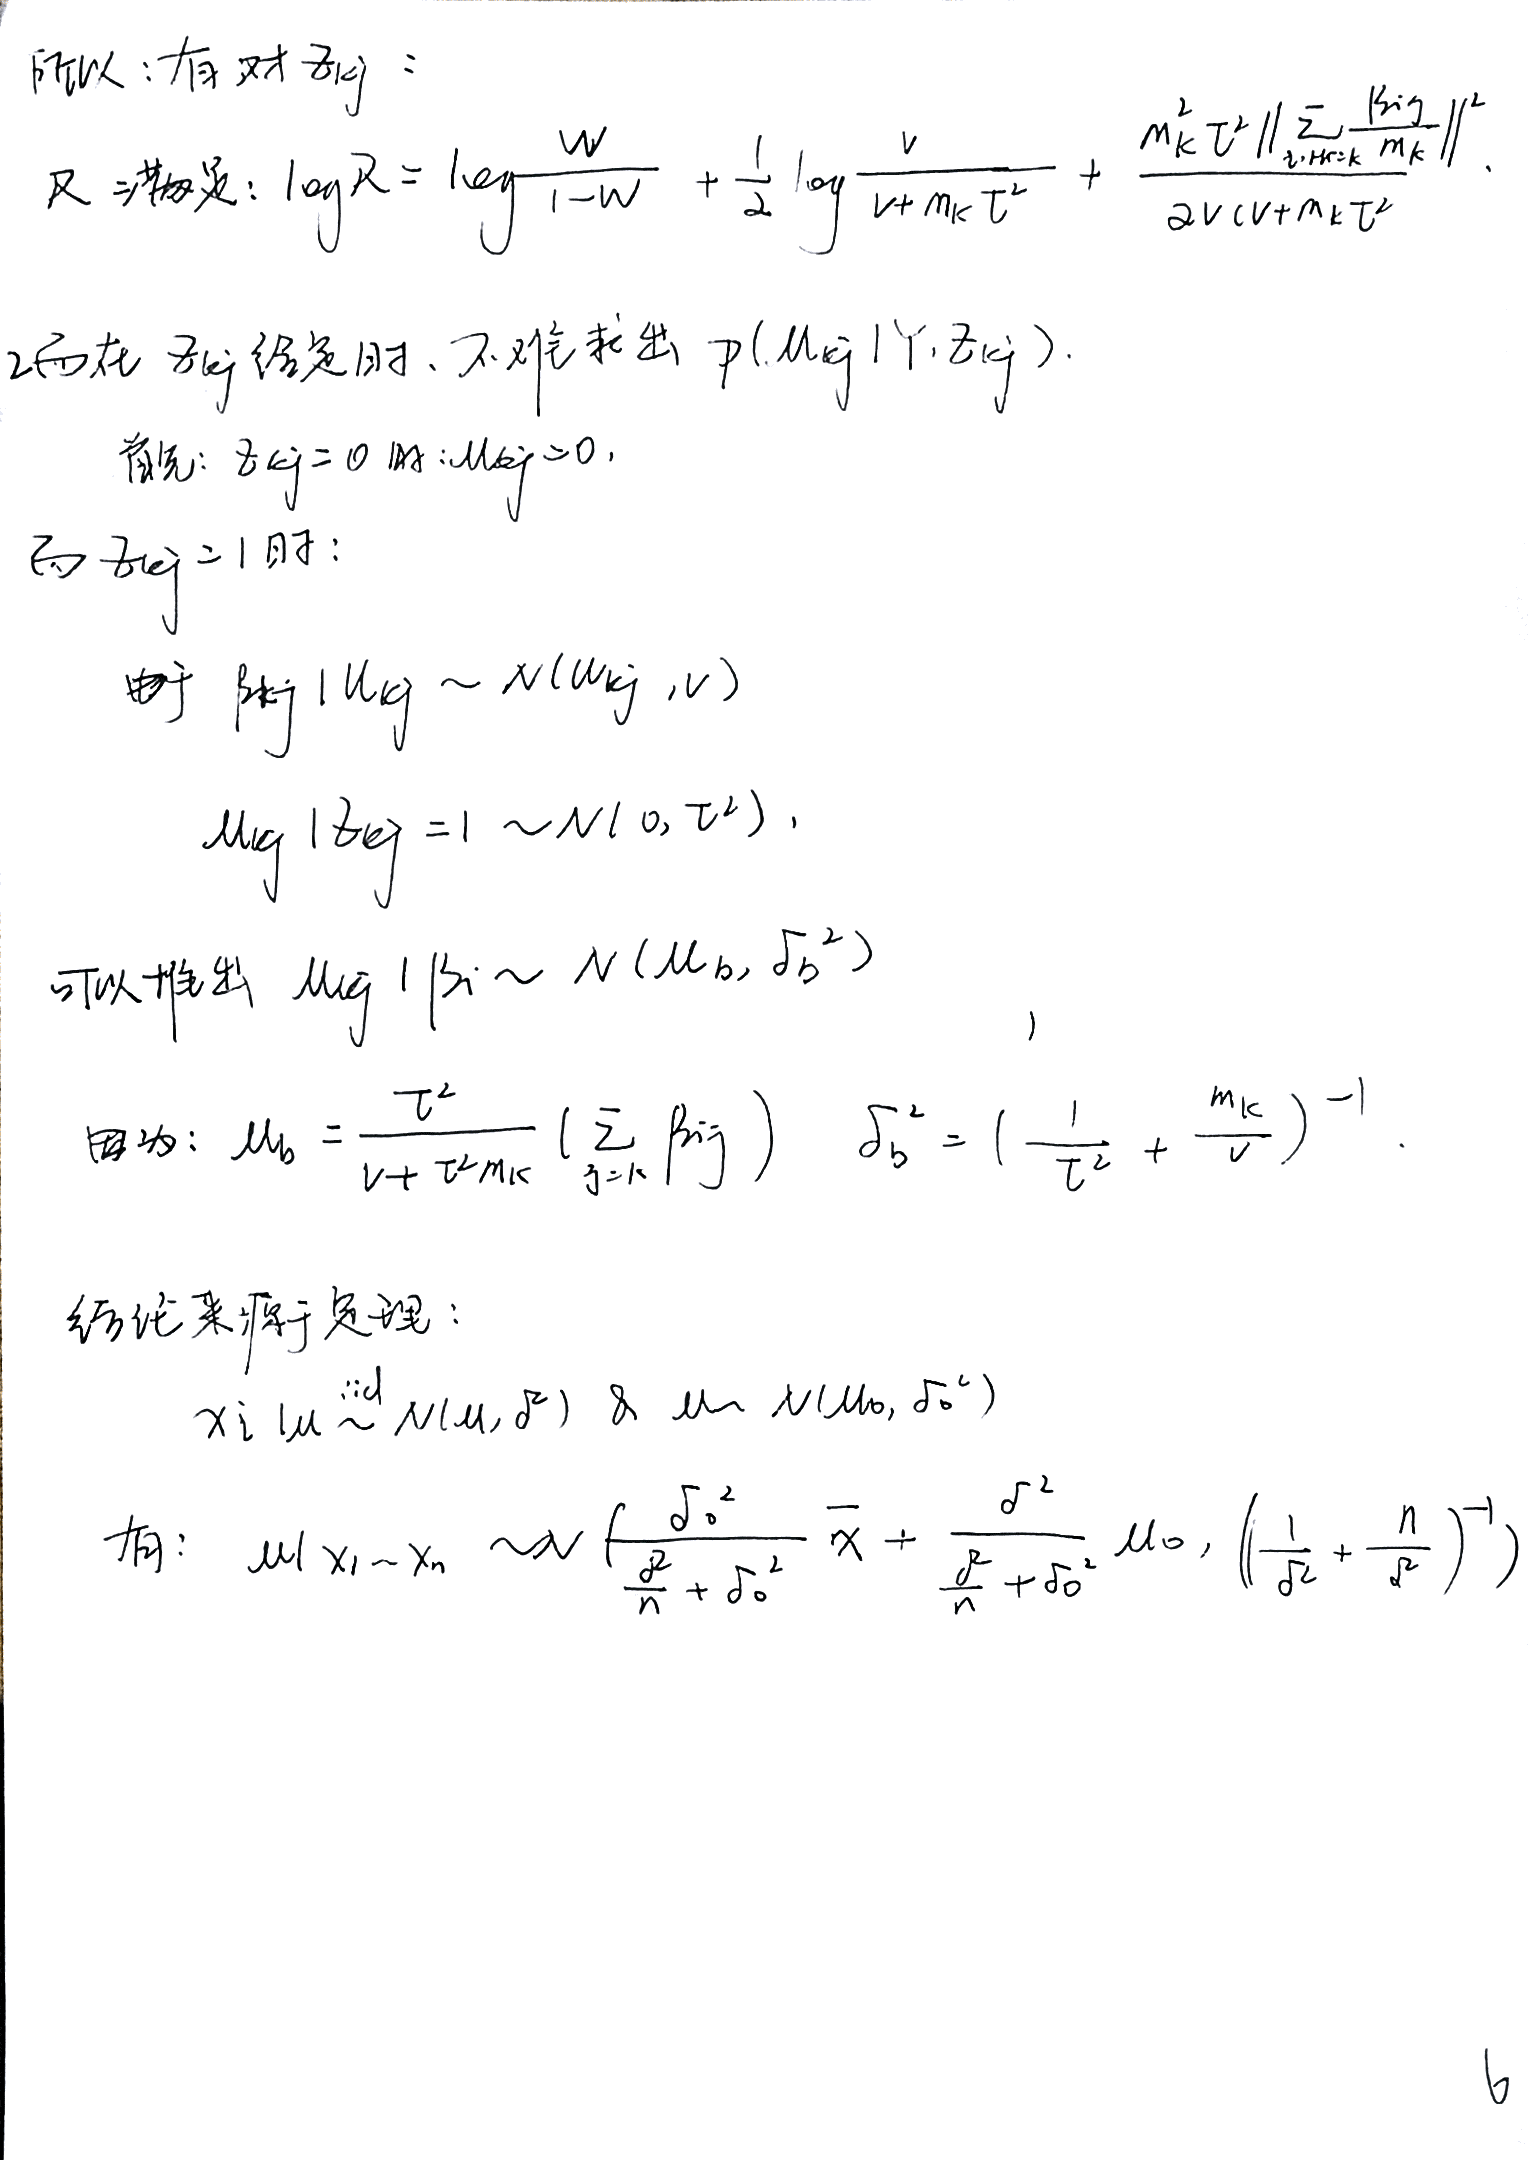 所以：有对 Zkj：
R 满足：log R = log W/(1-W) + 1/2 log v/(v+mkτ²) + mk²τ²‖Σ_{i:ri=k} βij/mk‖²/(2v(v+mkτ²).
2而在 Zkj 给定时、不难求出 p(μkj|Y,Zkj).
首先：Zkj=0时：μkj=0,
而 Zkj=1时：
由于 βkj|μkj ~ N(μkj,v)
μkj|Zkj=1 ~ N(0,τ²),
可以推出 μkj|βi ~ N(μb,δb²)
因为：μb = τ²/(v+τ²mk) (Σ_{j=k} βij) δb² = (1/τ² + mk/v)⁻¹.
结论来源于定理：
xi|μ iid~ N(μ,δ²) & μ ~ N(μ0,δ0²)
有：μ|x1~xn ~N(δ0²/(δ²/n+δ0²) x̄ + δ²/(δ²/n+δ0²) μ0, (1/δ²+n/δ²)⁻¹)
6